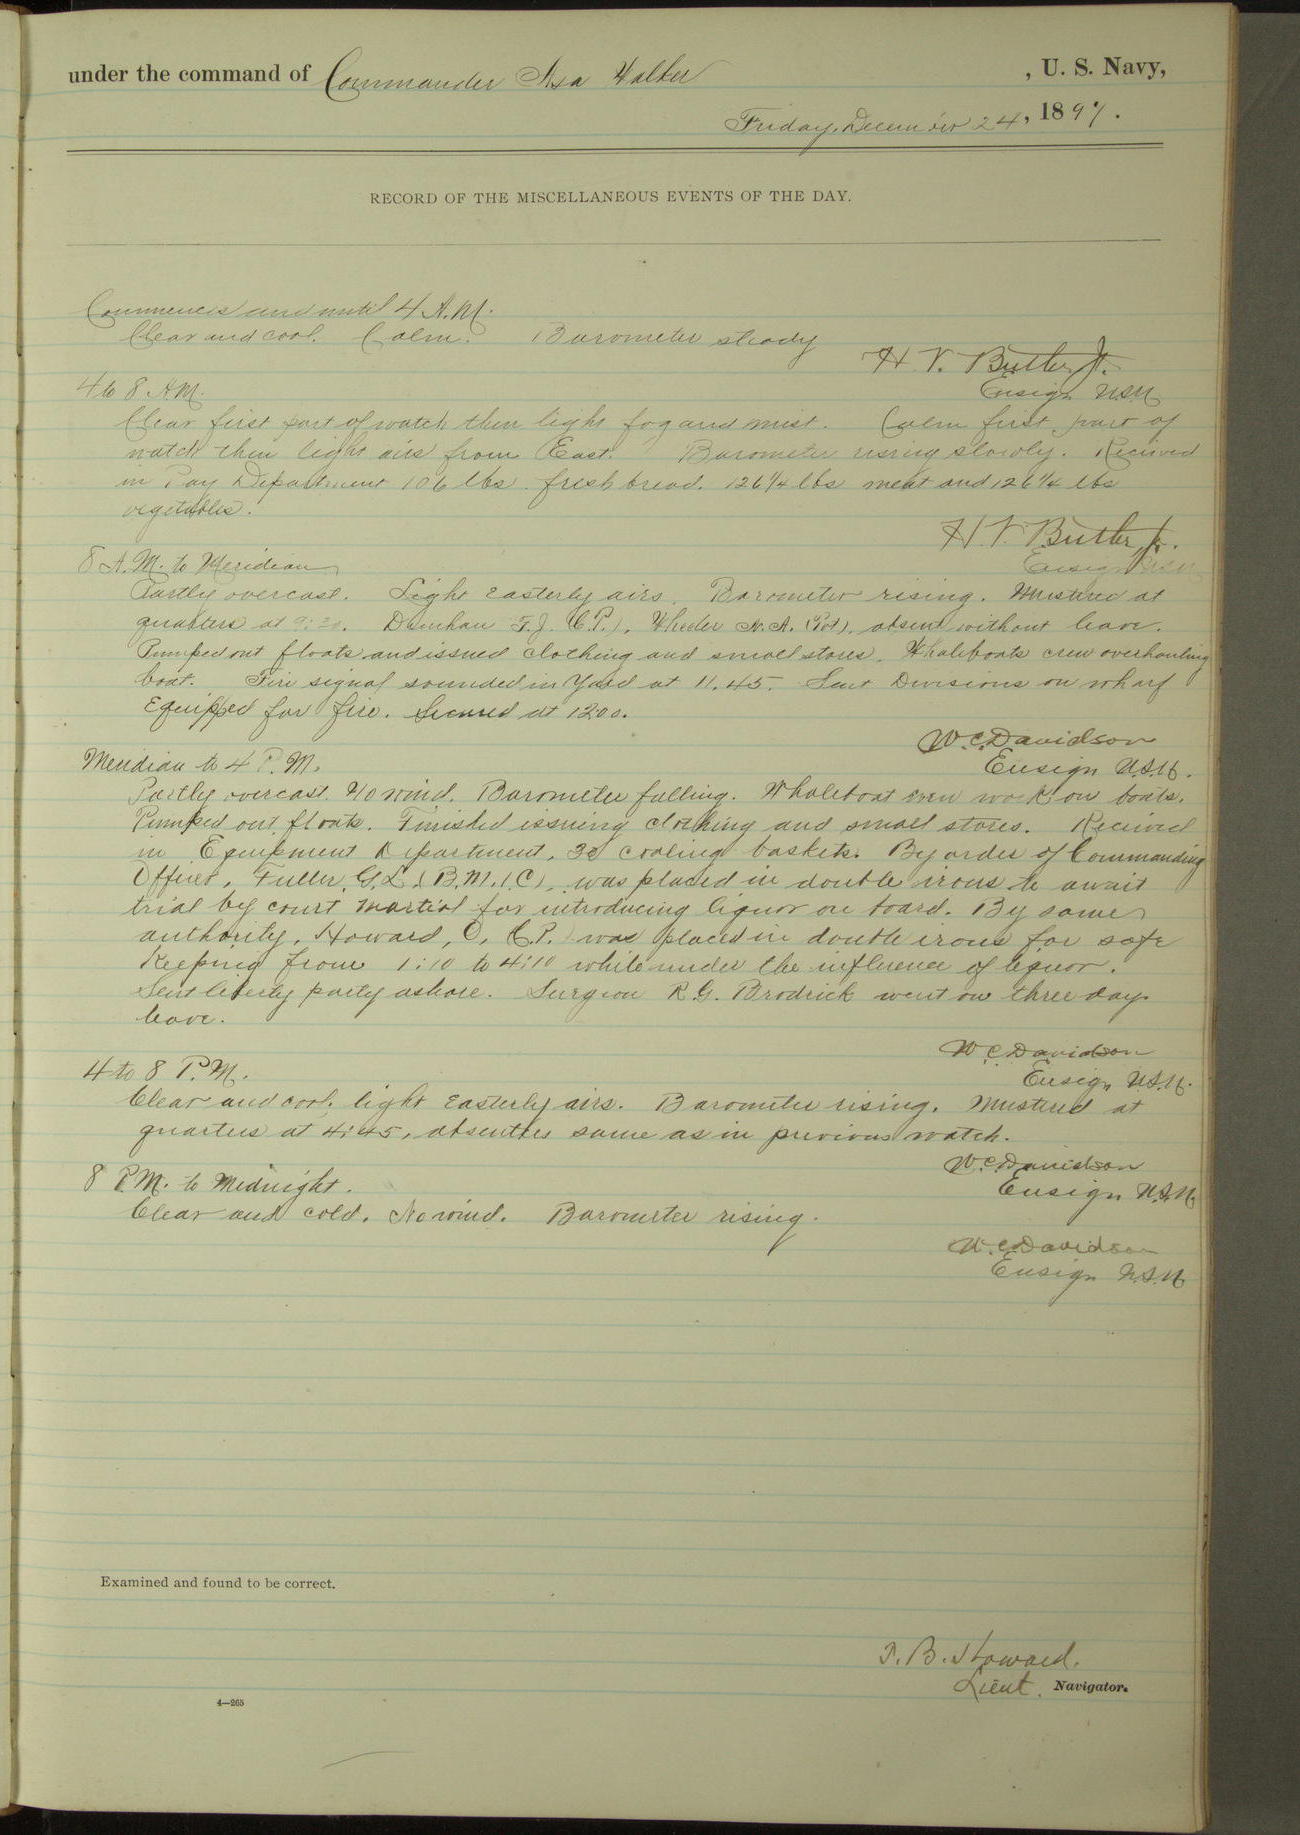 under the command of Commander Asa Walker , U. S. Navy,
Friday, December 24, 1897.
RECORD OF THE MISCELLANEOUS EVENTS OF THE DAY.
Commences and until 4 A.M.
Clear and cool. Calm. Barometer steady
H. V. Butler Jr.
Ensign USN
4 to 8 AM.
Clear first part of watch then light fog and mist. Calm first part of
watch then light airs from East. Barometer rising slowly. Received
in Pay Department 106 lbs fresh bread. 126 1/4 lbs meat and 126 1/4 lbs
vegetables.
H. V. Butler Jr.
Ensign USN
8 A.M. to Meridian
Partly overcast. Light Easterly airs. Barometer rising. Mustered at
quarters at 9:30. F. J. (C.P.), Wheeler N. A. absent without leave.
Pumped out floats and issued clothing and small stores. Whaleboats crew overhauling
boat. Fire signal sounded in Yard at 11.45. Sent Divisions on wharf
Equipped for fire. Secured at 1200.
W. C. Davidson
Ensign U.S.N.
Meridian to 4 P.M.
Partly overcast. No wind. Barometer falling. Whaleboat crew work on boats.
Pumped out floats. Finished issuing clothing and small stores. Received
in Equipment Department, 30 cooling baskets. By order of Commanding
Officer, Fuller, G.L. (B.M.1.C), was placed in double irons to await
trial by court martial for introducing liquor on board. By same
authority, Howard, O, C.P. was placed in double irons for safe
Keeping from 1:10 to 4:10 while under the influence of liquor.
Sent liberty party ashore. Surgeon R. G. Brodrick went on three days
leave.
W C Davidson
Ensign U.S.N.
4 to 8 P.M.
Clear and cool, light Easterly airs. Barometer rising. Mustered at
quarters at 4:45, absentees same as in previous watch.
W. C. Davidson
Ensign U.S.N.
8 P.M. to Midnight.
Clear and cold. No wind. Barometer rising.
W. C. Davidson
Ensign U.S.N.
Examined and found to be correct.
T. B. Howard.
Lieut. Navigator.
4—265